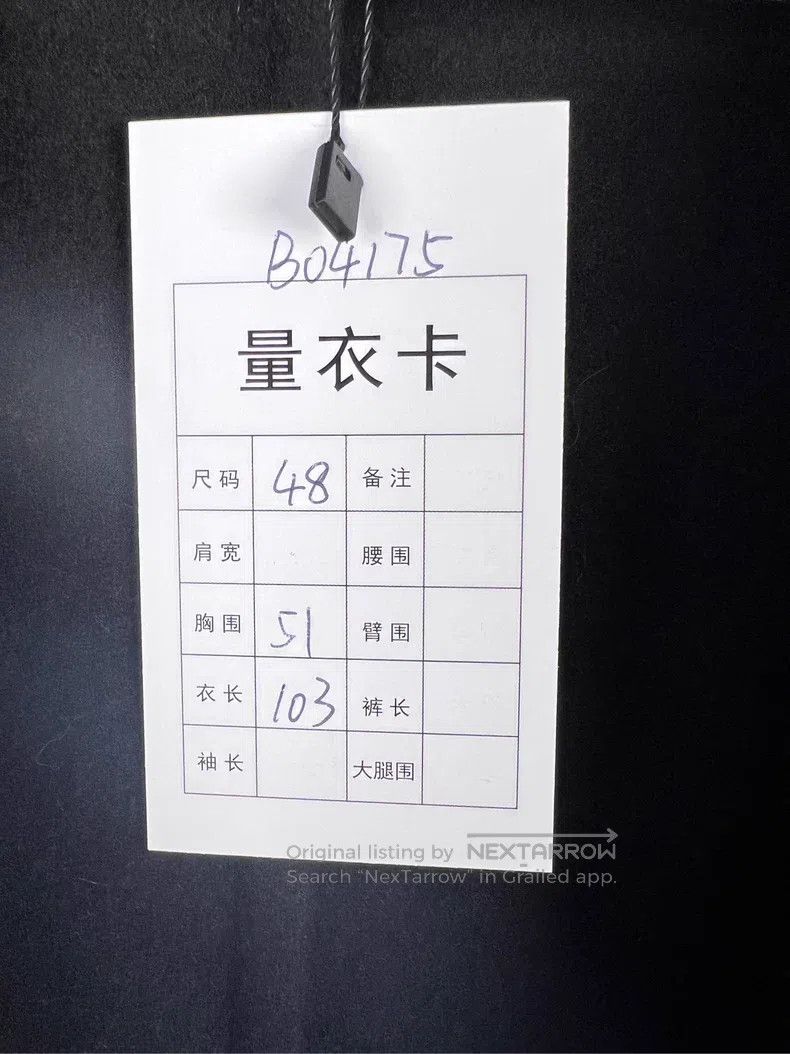 B04175
量衣卡
尺码 48 备注
肩宽 腰围
胸围 51 臂围
衣长 103 裤长
袖长 大腿围
Original listing by NEXTARROW
Search "NexTarrow" in Grailed app.